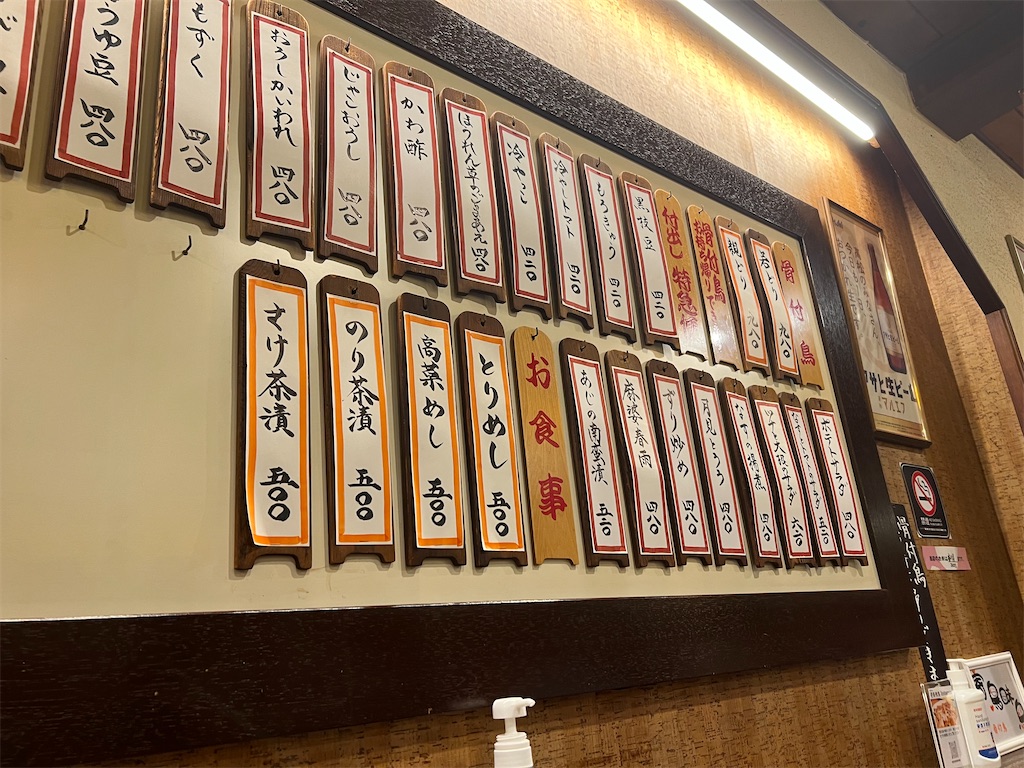 骨付鳥
若どり 九八〇
親どり 九八〇
骨付鳥
付出し 特急便
黒枝豆 四二〇
もろきゅう 四二〇
冷やしトマト 四二〇
冷やっこ 四二〇
ほうれん草のごまあえ 四八〇
かわ酢 四八〇
じゃこおろし 四八〇
おろしかいわれ 四八〇
もずく 四八〇
うゆ豆 四八〇
ポテトサラダ 四八〇
五八〇
ツナと大根のサダ 六八〇
なすの揚煮 四八〇
月見とろろ 四八〇
ずり炒め 四八〇
麻婆春雨 四八〇
あじの南蛮漬 五八〇
お食事
とりめし 五〇〇
高菜めし 五〇〇
のり茶漬 五〇〇
さけ茶漬 五〇〇
アサヒ生ビール
マルエフ
骨付鳥